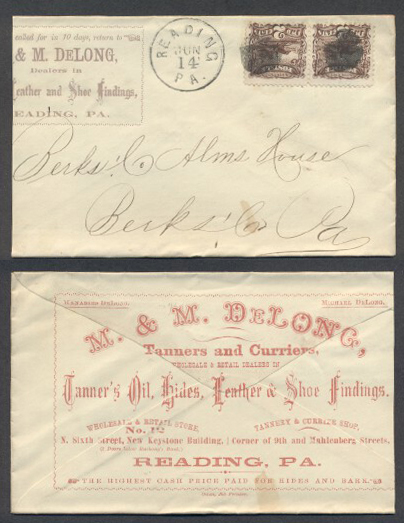 called for in 10 days, return to
& M. DeLONG,
Dealers in
Leather and Shoe Findings,
READING, PA.
READING
JUN
14
PA.
Berks Co. Alms House
Berks Co
Pa
MICHAEL DELONG.
M. & M. DeLONG,
Tanners and Curriers,
WHOLESALE & RETAIL DEALERS IN
Tanner's Oil, Hides, Leather & Shoe Findings.
WHOLESALE & RETAIL STORE, TANNERY & CURRIER SHOP,
No. 12
N. Sixth Street, New Keystone Building, Corner of 9th and Muhlenberg Streets,
READING, PA.
THE HIGHEST CASH PRICE PAID FOR HIDES AND BARK.